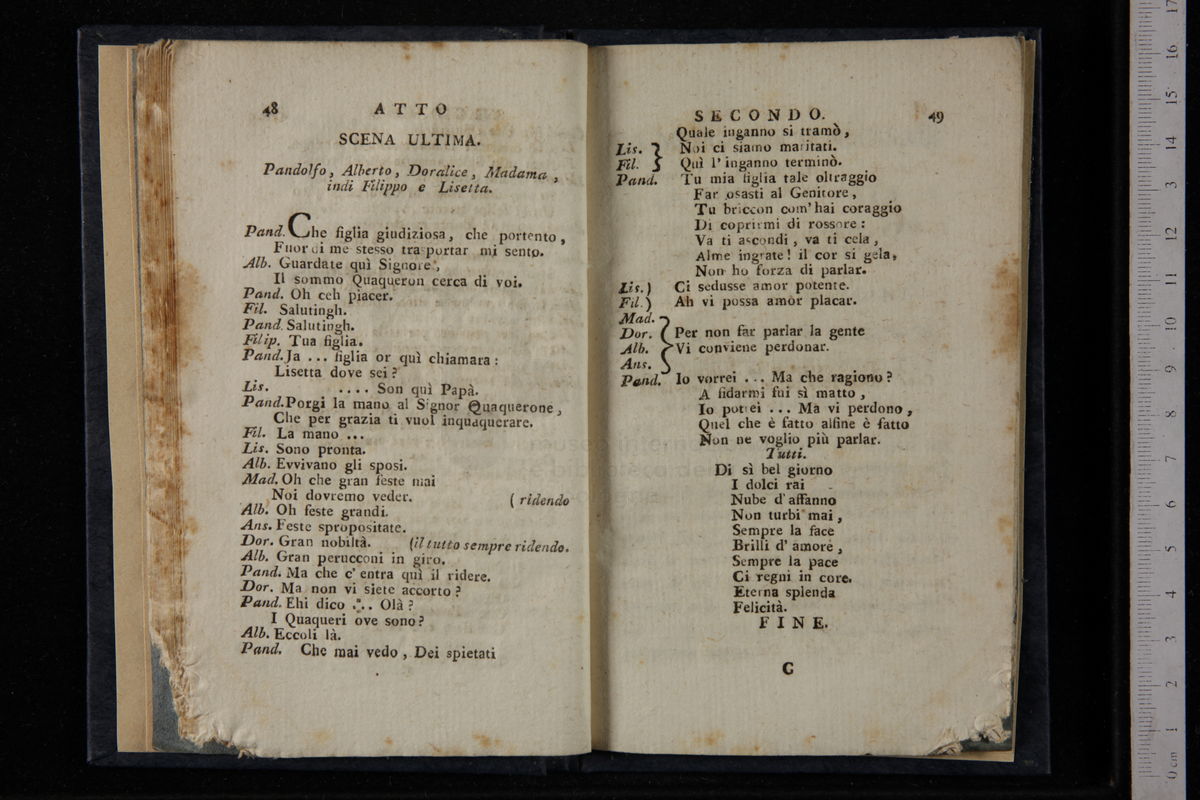 48 ATTO
SCENA ULTIMA.
Pandolfo, Alberto, Doralice, Madama,
indi Filippo e Lisetta.
Pand. Che figlia giudiziosa, che portento,
Fuor di me stesso trasportar mi sento.
Alb. Guardate quì Signore,
Il sommo Quaqueron cerca di voi.
Pand. Oh ceh piacer.
Fil. Salutingh.
Pand. Salutingh.
Filip. Tua figlia.
Pand. Ja ... figlia or quì chiamara:
Lisetta dove sei?
Lis. .... Son quì Papà.
Pand. Porgi la mano al Signor Quaquerone,
Che per grazia ti vuol inquaquerare.
Fil. La mano ...
Lis. Sono pronta.
Alb. Evvivano gli sposi.
Mad. Oh che gran feste mai
Noi dovremo veder. (ridendo
Alb. Oh feste grandi.
Ans. Feste spropositate.
Dor. Gran nobiltà. (il tutto sempre ridendo.
Alb. Gran perucconi in giro.
Pand. Ma che c'entra quì il ridere.
Dor. Ma non vi siete accorto?
Pand. Ehi dico ... Olà?
I Quaqueri ove sono?
Alb. Eccoli là.
Pand. Che mai vedo, Dei spietati
SECONDO. 49
Quale inganno si tramò,
Lis. } Noi ci siamo maritati.
Fil. } Quì l'inganno terminò.
Pand. Tu mia figlia tale oltraggio
Far osasti al Genitore,
Tu briccon com'hai coraggio
Di coprirmi di rossore:
Va ti ascondi, va ti cela,
Alme ingrate! il cor si gela,
Non ho forza di parlar.
Lis.) Ci sedusse amor potente.
Fil.) Ah vi possa amor placar.
Mad.
Dor. { Per non far parlar la gente
Alb. { Vi conviene perdonar.
Ans.
Pand. Io vorrei ... Ma che ragiono?
A fidarmi fui sì matto,
Io potrei ... Ma vi perdono,
Quel che è fatto alfine è fatto
Non ne voglio più parlar.
Tutti.
Di sì bel giorno
I dolci rai
Nube d'affanno
Non turbi mai,
Sempre la face
Brilli d'amore,
Sempre la pace
Ci regni in core.
Eterna splenda
Felicità.
FINE.
C
0 cm 1 2 3 4 5 6 7 8 9 10 11 12 13 14 15 16 17